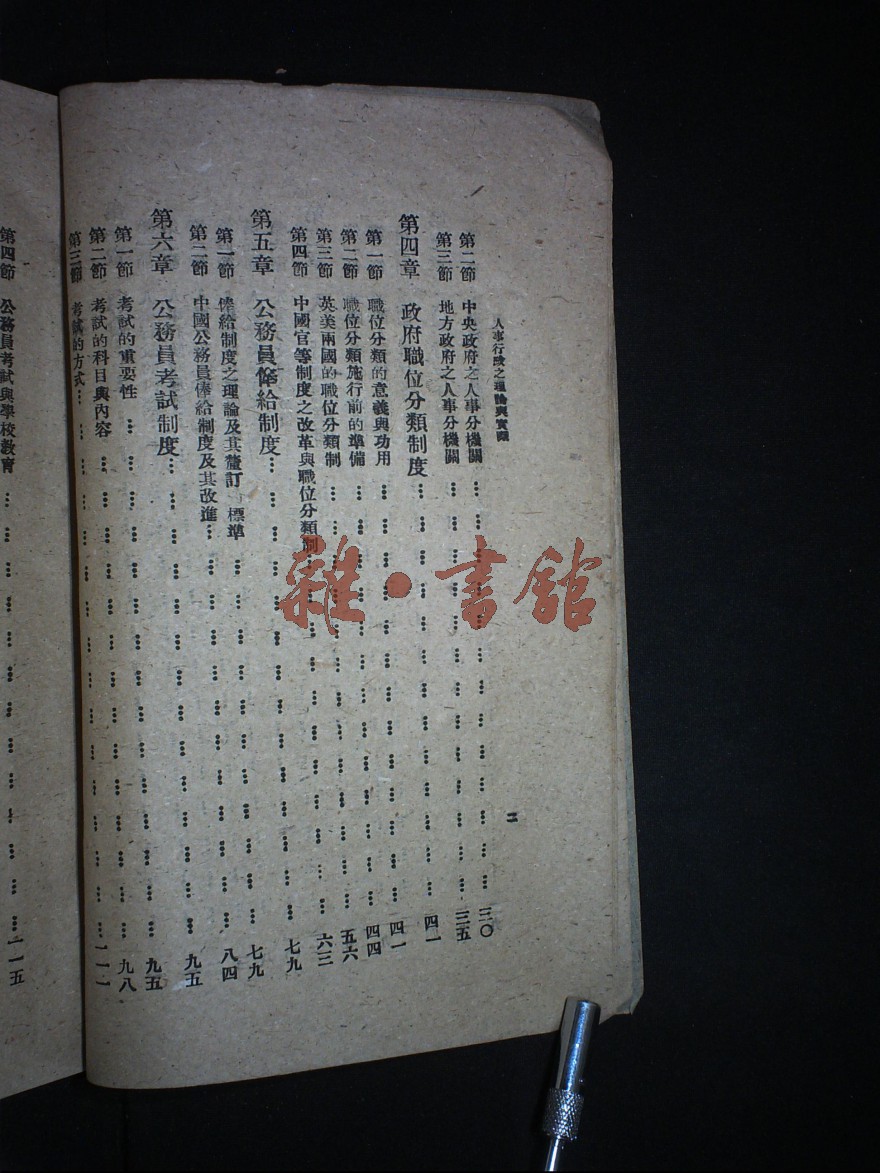 人事行政之理論與實際
二
第二節 中央政府之人事分機關……三〇
第三節 地方政府之人事分機關……三五
第四章 政府職位分類制度……四一
第一節 職位分類的意義與功用……四一
第二節 職位分類施行前的準備……四四
第三節 英美兩國的職位分類制……五六
第四節 中國官等制度之改革與職位分類制……六三
第五章 公務員俸給制度……七九
第一節 俸給制度之理論及其釐訂 標準……七九
第二節 中國公務員俸給制度及其改進……八四
第六章 公務員考試制度……九五
第一節 考試的重要性……九五
第二節 考試的科目與內容……九八
第三節 考試的方式……一一一
第四節 公務員考試與學校教育……一一五
雜·書館